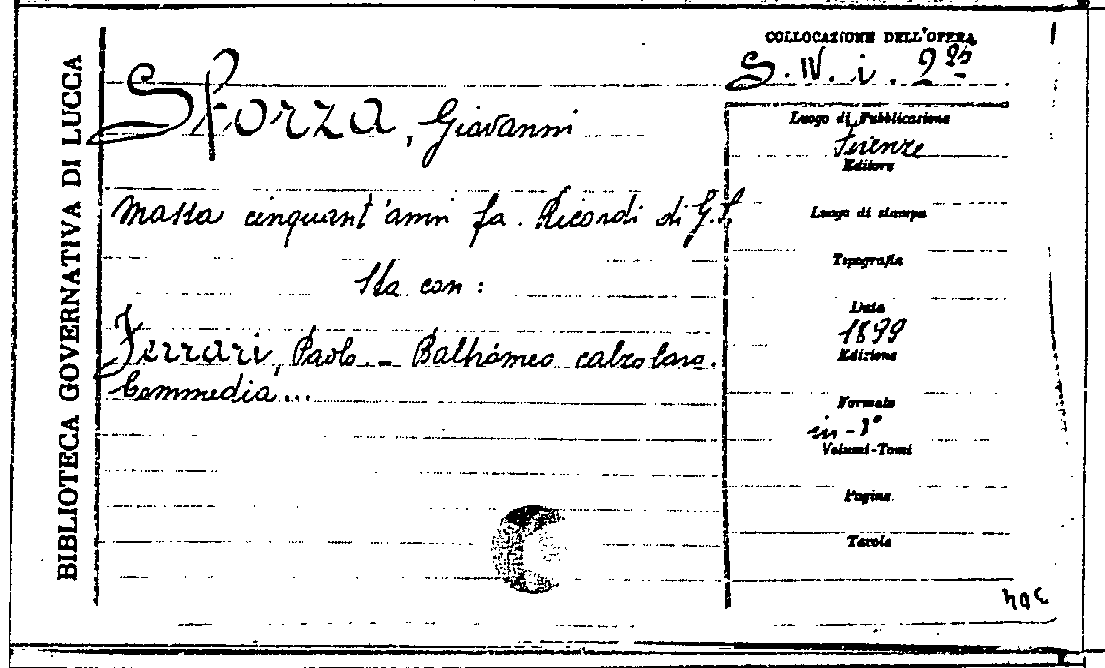 BIBLIOTECA GOVERNATIVA DI LUCCA
COLLOCAZIONE DELL'OPERA
S. IV. i. 2
Sforza, Giovanni
Massa cinquant'anni fa. Ricordi di G.S.
Sta con:
Ferrari, Paolo - Baltromeo calzolaro.
Commedia...
Luogo di Pubblicazione
Firenze
Editore
Luogo di stampa
Tipografia
Data
1899
Edizione
Formato
in-8°
Volumi-Tomi
Pagine
Tavole